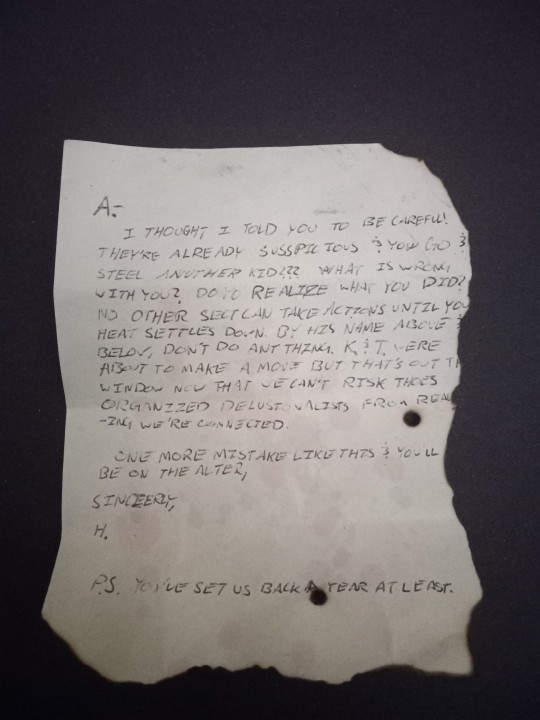 A:-
I THOUGHT I TOLD YOU TO BE CAREFUL!
THEY'RE ALREADY SUSSPICIOUS & YOU GO &
STEEL ANOTHER KID??? WHAT IS WRONG
WITH YOU? DO YO REALIZE WHAT YOU DID?
NO OTHER SECT CAN TAKE ACTIONS UNTIL YOU
HEAT SETTLES DOWN. BY HIS NAME ABOVE &
BELOW, DON'T DO ANYTHING. K & T WERE
ABOUT TO MAKE A MOVE BUT THAT'S OUT TH
WINDOW NOW THAT WE CAN'T RISK THOES
ORGANIZED DELUSIONALISTS FROM REAL
-ING WE'RE CONNECTED.
ONE MORE MISTAKE LIKE THIS & YOU'LL
BE ON THE ALTER,
SINCEERLY,
H.
P.S. YOU'VE SET US BACK A YEAR AT LEAST.